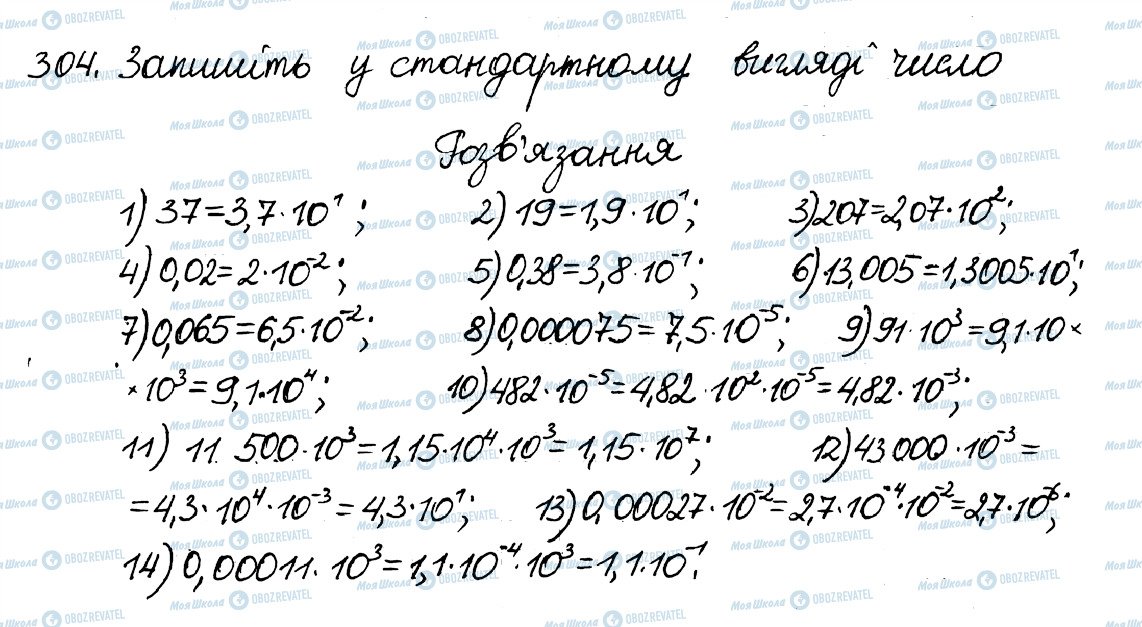 304. Запишіть у стандартному вигляді число
Розв'язання
1) 37=3,7·10¹; 2) 19=1,9·10¹; 3) 207=2,07·10²;
4) 0,02=2·10⁻²; 5) 0,38=3,8·10⁻¹; 6) 13,005=1,3005·10¹;
7) 0,065=6,5·10⁻²; 8) 0,000075=7,5·10⁻⁵; 9) 91·10³=9,1·10×
×10³=9,1·10⁴; 10) 482·10⁻⁵=4,82·10²·10⁻⁵=4,82·10⁻³;
11) 11 500·10³=1,15·10⁴·10³=1,15·10⁷; 12) 43 000·10⁻³=
=4,3·10⁴·10⁻³=4,3·10¹; 13) 0,00027·10⁻²=2,7·10⁻⁴·10⁻²=2,7·10⁻⁶;
14) 0,00011·10³=1,1·10⁻⁴·10³=1,1·10⁻¹.
Моя Школа OBOZREVATEL